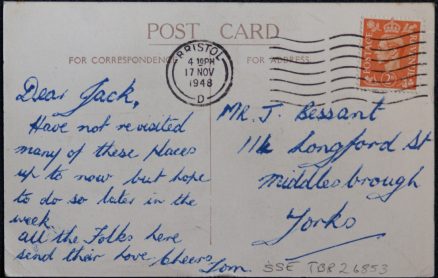 POST CARD
FOR CORRESPONDENCE
FOR ADDRESS
BRISTOL
4 PM
17 NOV
1948
D
POSTAGE
REVENUE
Dear Jack,
Have not revisited
many of these places
up to now but hope
to do so later in the
week.
all the Folks here
send their love, Cheers
Tom.
MR. J. Bessant
Longford St
middlesbrough
Yorks
SSE TBR26853